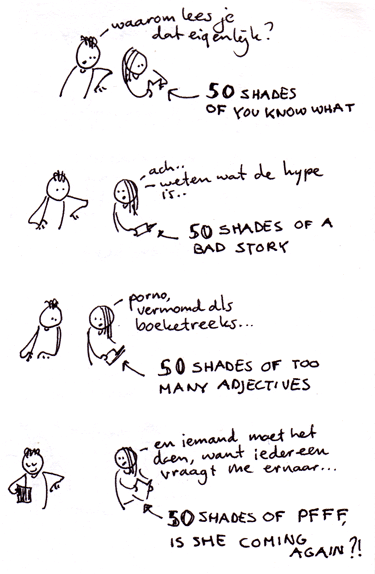 waarom lees je
dat eigenlijk?
50 SHADES
OF YOU KNOW WHAT
ach..
weten wat de hype
is..
50 SHADES OF A
BAD STORY
porno,
vermomd als
boeketreeks...
50 SHADES OF TOO
MANY ADJECTIVES
en iemand moet het
doen, want iedereen
vraagt me ernaar...
50 SHADES OF PFFF,
IS SHE COMING
AGAIN?!